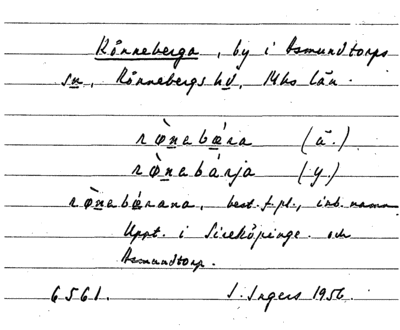 Rönneberga, by i Asmundtorps
sn, Rönnebergs hd, Mhs län.
rø̀nabára (ä.)
rø̀nabárja (y.)
rø̀nabárana, best. f. pl., inb. namn
Uppt. i Sireköpinge och
Asmundtorp.
6561. I. Ingers 1956.